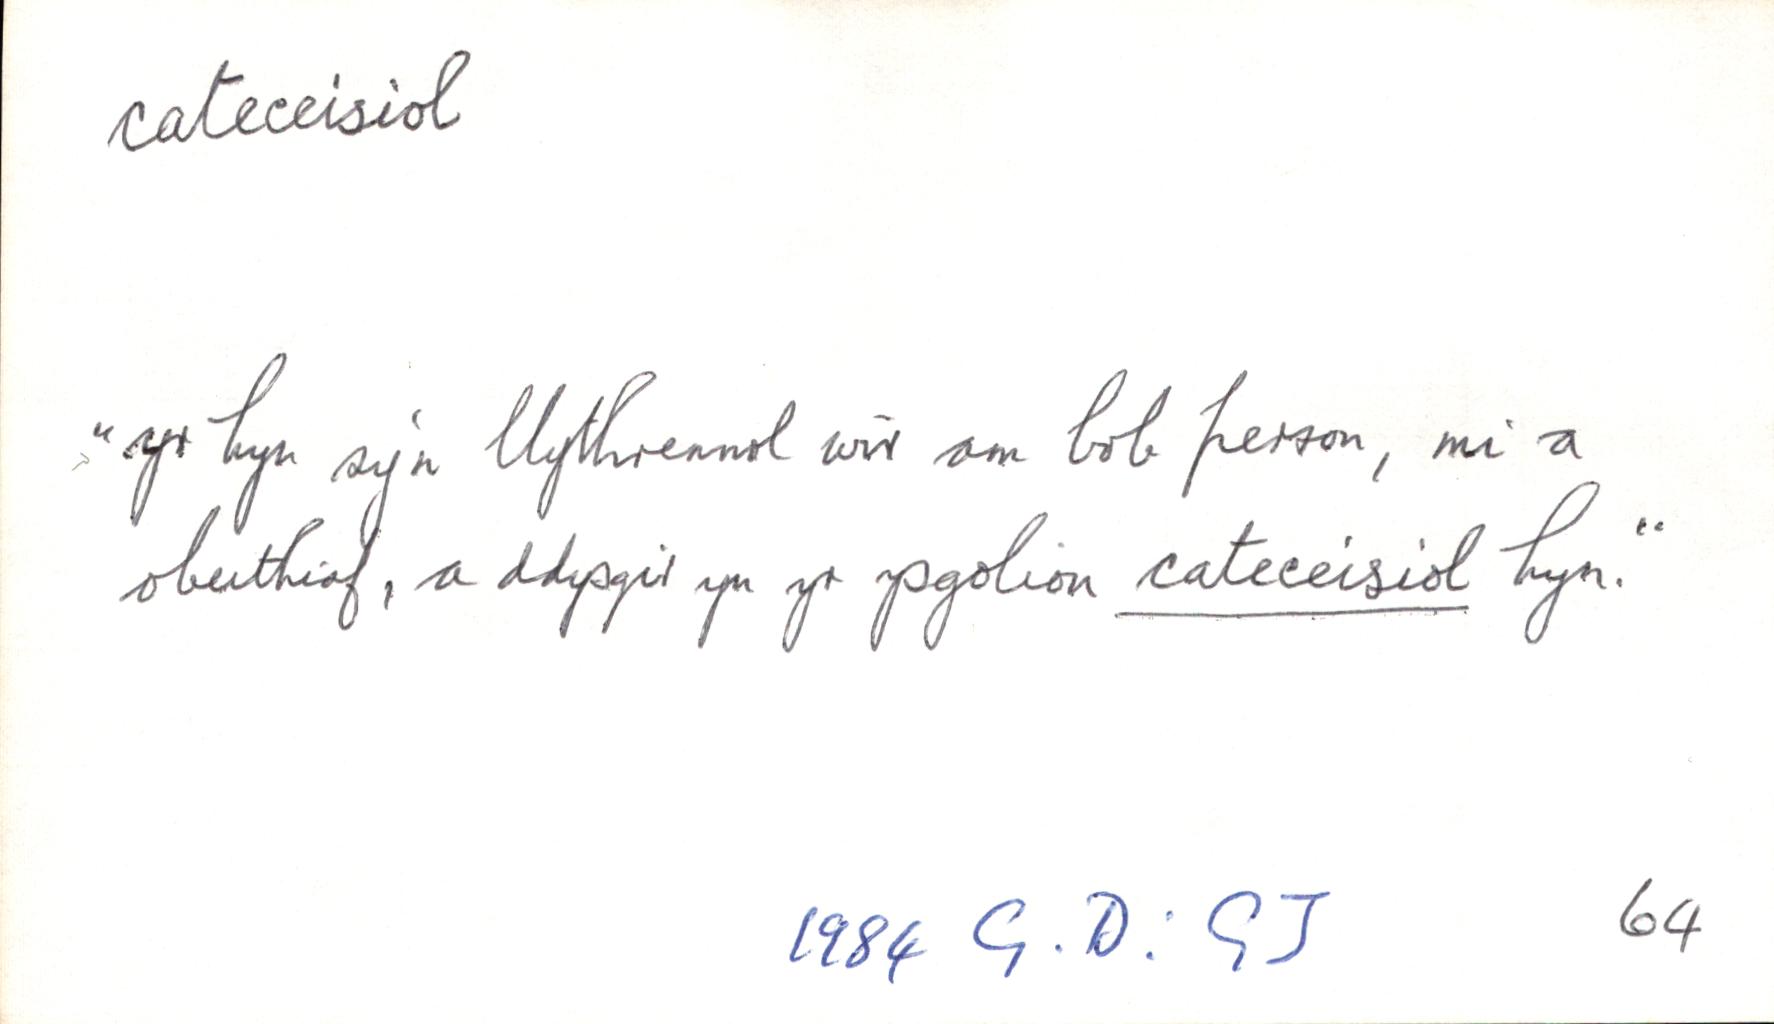 cateceisiol
"yr hyn sy'n llythrennol wir am bob person, mi a
obeithiaf, a ddysgir yn yr ysgolion cateceisiol hyn."
1984 G. D: GJ 64